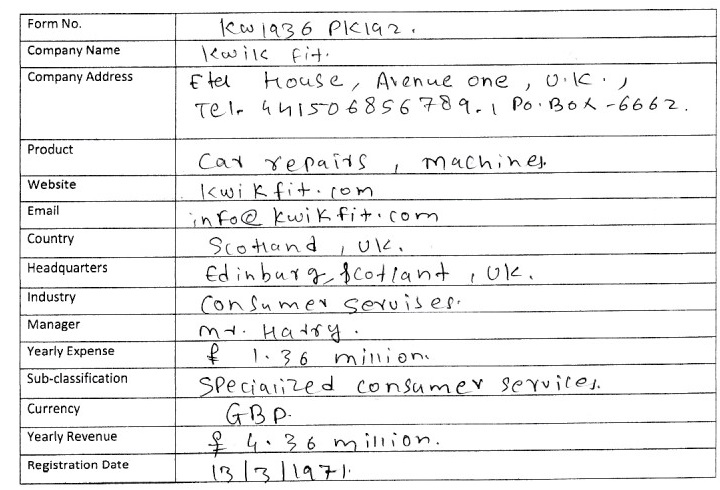 Form No. KW1936 PK192.
Company Name Kwik fit.
Company Address Etel House, Avenue one, U.K.,
Tel. 441506856789., Po.Box-6662.
Product Car repairs, machines.
Website kwikfit.com
Email info@kwikfit.com
Country Scotland, UK.
Headquarters Edinburg, Scotlant, UK.
Industry Consumer Servises.
Manager Mr. Harry.
Yearly Expense £ 1.36 million.
Sub-classification Specialized consumer services.
Currency GBP.
Yearly Revenue £ 4.36 million.
Registration Date 13/3/1971.